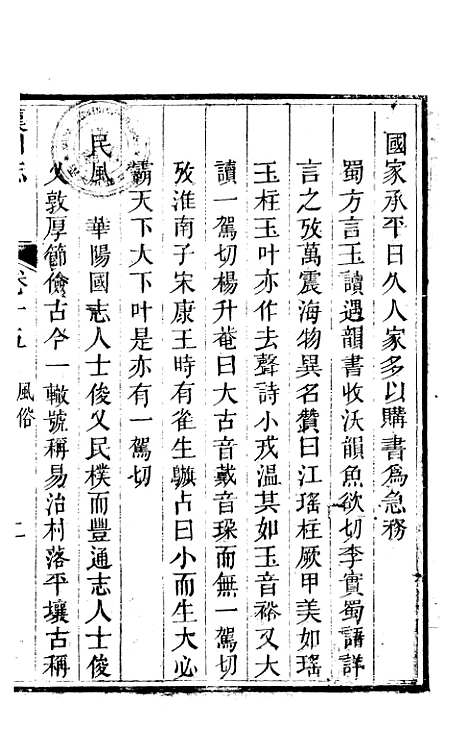 國家承平日久人家多以購書爲急務
蜀方言玉讀遇韻書收沃韻魚欲切李實蜀語詳
言之攷萬震海物異名贊曰江瑤柱厥甲美如瑤
玉柱玉叶亦作去聲詩小戎温其如玉音裕又大
讀一駕切楊升菴曰大古音戴音垜而無一駕切
攷淮南子宋康王時有雀生鸇占曰小而生大必
霸天下大下叶是亦有一駕切
民風 華陽國志人士俊乂民樸而豐通志人士俊
乂敦厚節儉古今一轍號稱易治村落平壤古稱
卷十五 風俗 二